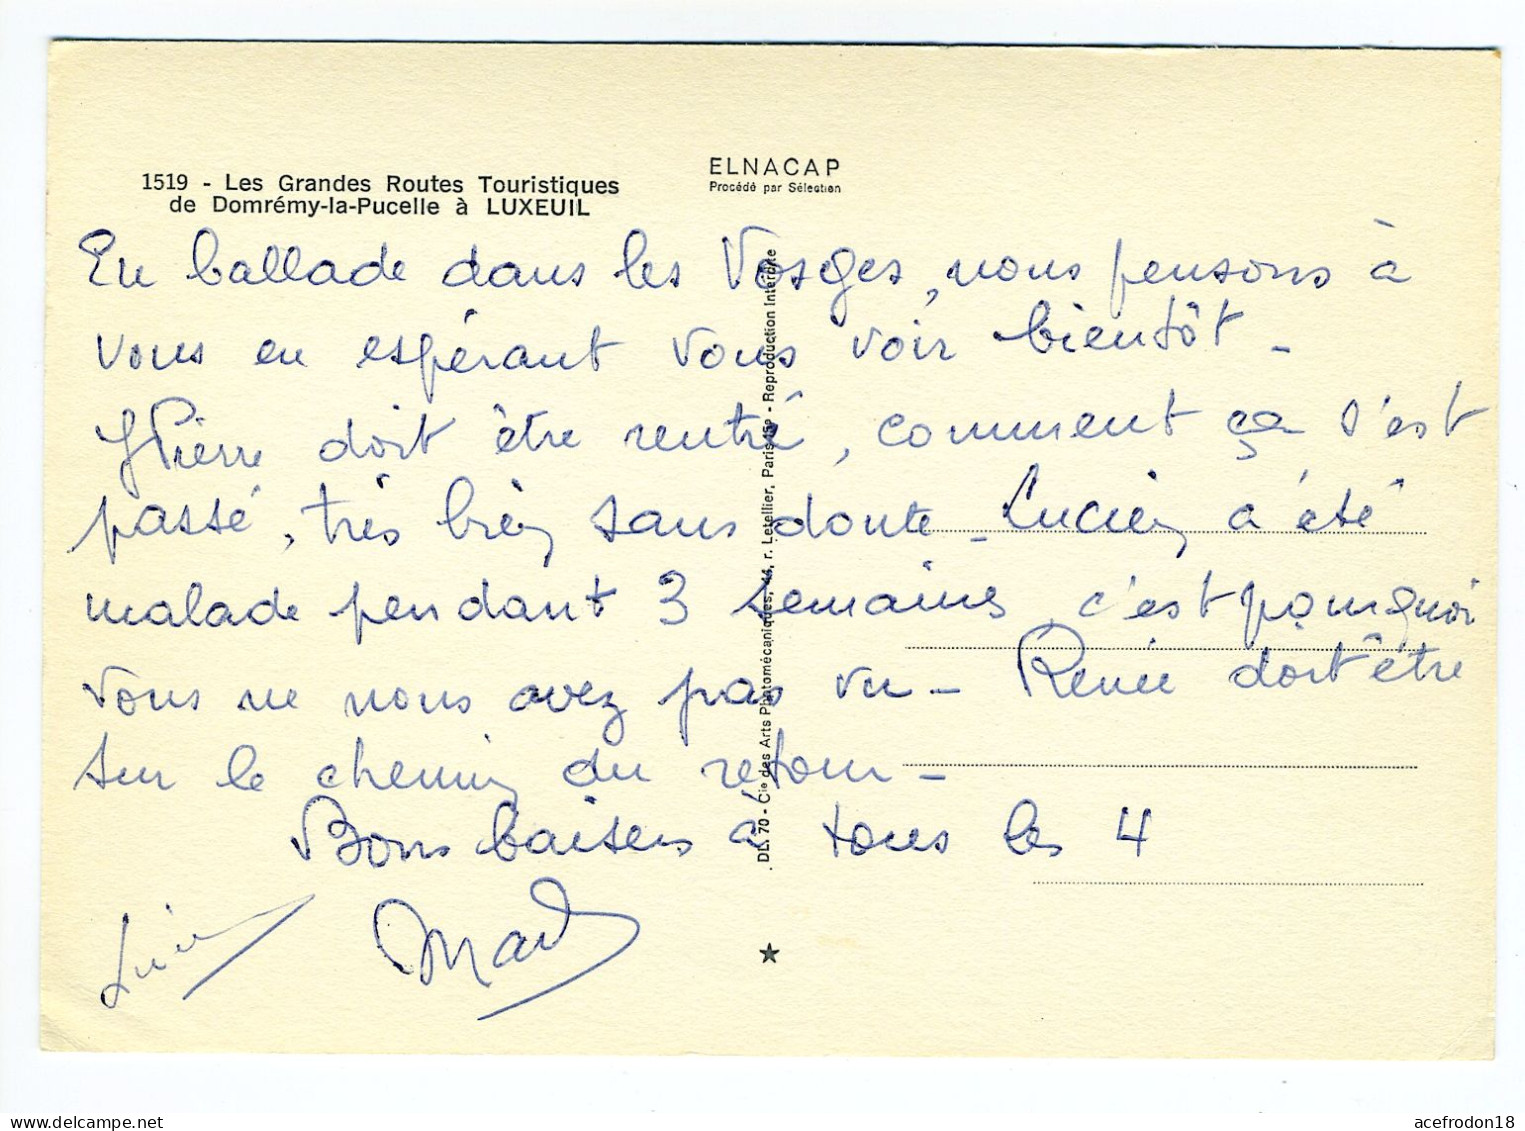 1519 - Les Grandes Routes Touristiques
de Domrémy-la-Pucelle à LUXEUIL
ELNACAP
Procédé par Sélection
En ballade dans les Vosges, nous pensons à
vous en espérant vous voir bientôt -
JPierre doit être rentré, comment ça s'est
passé, très bien sans doute - Lucien a été
malade pendant 3 semaines, c'est pourquoi
vous ne nous avez pas vu - Renée doit être
sur le chemin du retour -
Bons baisers à tous les 4
Lucien
DL. 70 - Cie des Arts Photomécaniques, 44, r. Letellier, Paris 15e - Reproduction Interdite
acefrodon18